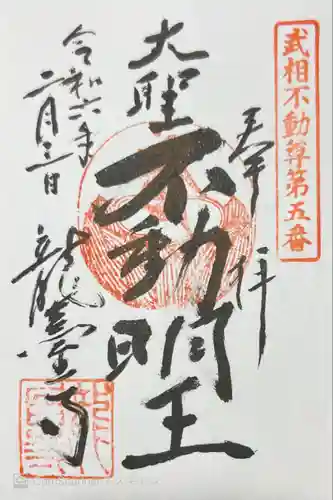 武相不動尊第五番
奉拝
大聖不動明王
令和六年
二月三日
龍臺寺